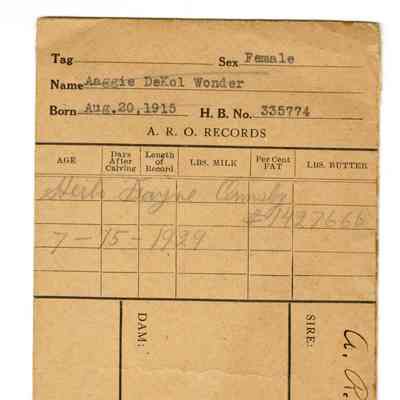 Tag Sex Female
Name Aaggie DeKol Wonder
Born Aug.20,1915 H. B. No. 335774
A. R. O. RECORDS
AGE Days After Calving Length of Record LBS. MILK Per Cent FAT LBS. BUTTER
Herb Wayne Ormsby
# 1427666
7-15-1929
DAM:
SIRE:
A. R.